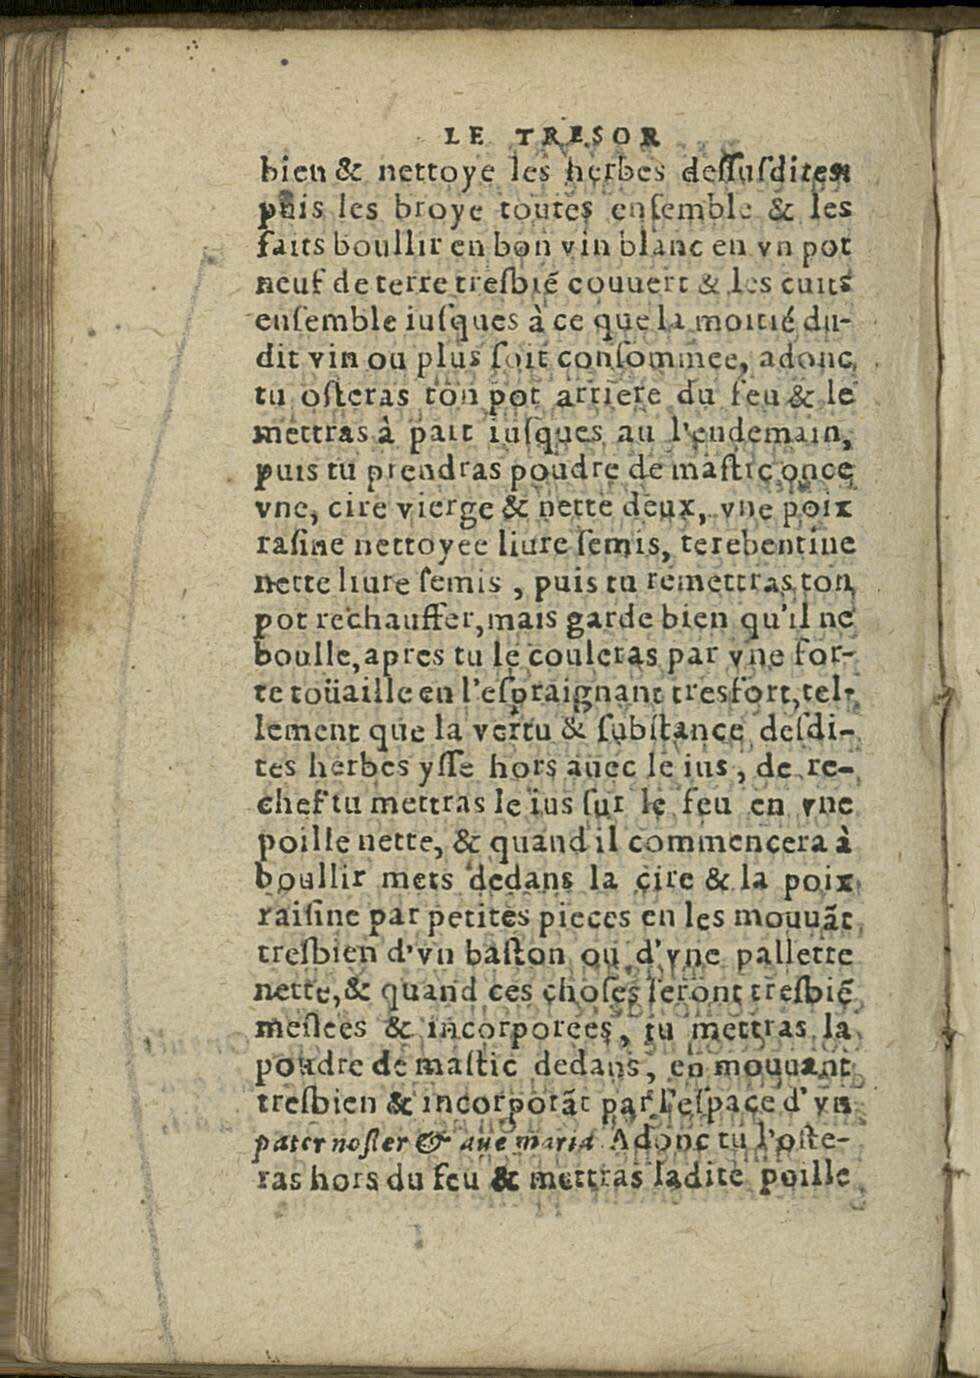 LE TRESOR
bien & nettoye les herbes deſſuſdites
puis les broye toutes enſemble & les
faits boullir en bon vin blanc en vn pot
neuf de terre treſbié couuert & les cuits
enſemble iuſques à ce que la moitié du-
dit vin ou plus ſoit conſommee, adonc
tu oſteras ton pot arriere du feu & le
mettras à part iuſques au l'endemain,
puis tu prendras poudre de maſtic once
vne, cire vierge & nette deux, vne poix
raſine nettoyee liure ſemis, terebentine
nette liure ſemis , puis tu remettras ton
pot rechauffer, mais garde bien qu'il ne
boulle, apres tu le couleras par vne for-
te toüaille en l'eſpraignant tresfort, tel-
lement que la vertu & ſubſtance deſdi-
tes herbes yſſe hors auec le ius , de re-
chef tu mettras le ius ſur le feu en vne
poille nette, & quand il commencera à
boullir mets dedans la cire & la poix
raiſine par petites pieces en les mouuãt
treſbien d'vn baſton ou d'vne pallette
nette, & quand ces choſes ſeront treſbié
meſlees & incorporees, tu mettras la
poudre de maſtic dedans, en mouuant
treſbien & incorporãt par l'eſpace d'vn
pater noſter & aue maria Adonc tu l'oſte-
ras hors du feu & mettras ladite poille